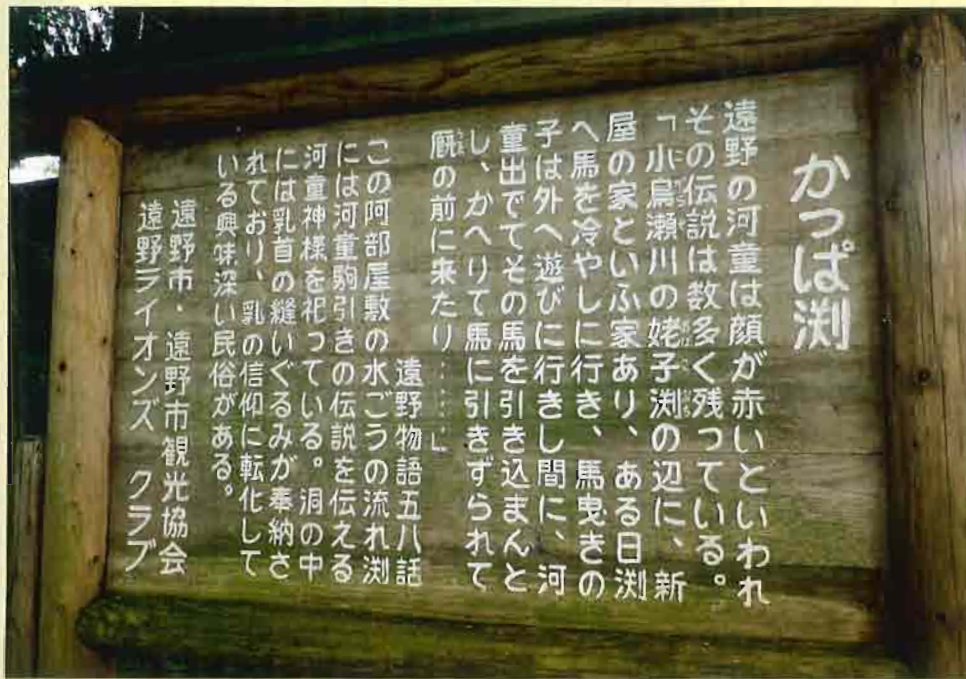 かっぱ渕
遠野の河童は顔が赤いといわれ
その伝説は数多く残っている。
「小鳥瀬川の姥子渕の辺に、新
屋の家といふ家あり、ある日渕
へ馬を冷やしに行き、馬曳きの
子は外へ遊びに行きし間に、河
童出でてその馬を引き込まんと
し、かへりて馬に引きずられて
厩の前に来たり……」
遠野物語五八話
この阿部屋敷の水ごうの流れ渕
には河童駒引きの伝説を伝える
河童神様を祀っている。洞の中
には乳首の縫いぐるみが奉納さ
れており、乳の信仰に転化して
いる興味深い民俗がある。
遠野市・遠野市観光協会
遠野ライオンズ クラブ